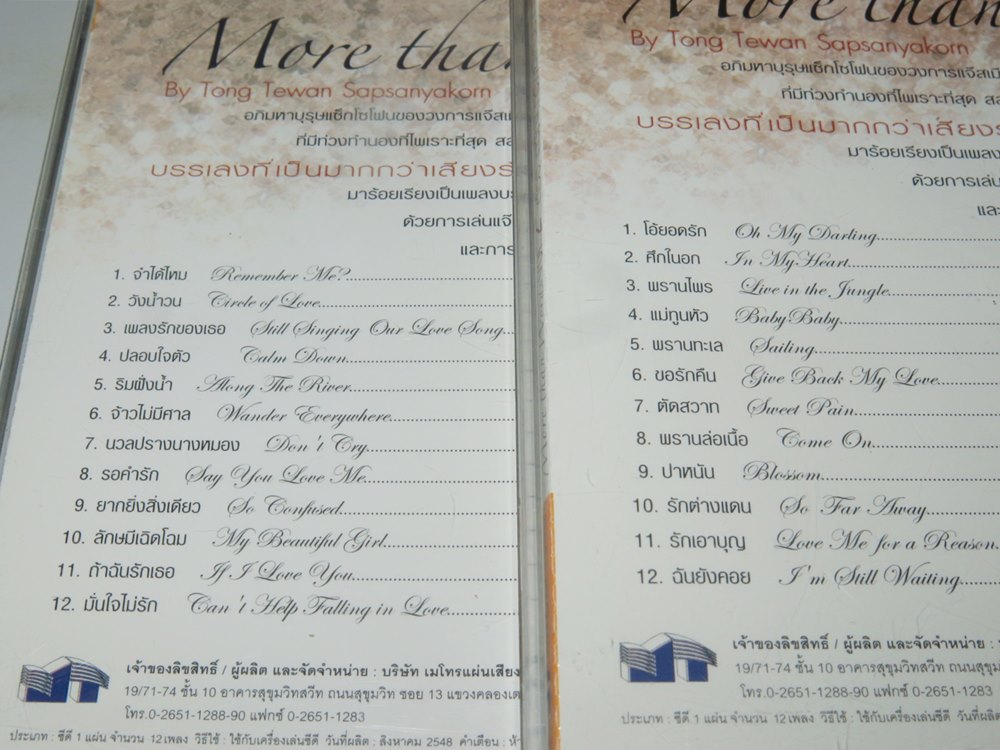 More tha
By Tong Tewan Sapsanyakorn
อภิมหาบุรุษแซ็กโซโฟนของวงการแจ๊สเ
ที่มีท่วงทำนองที่ไพเราะที่สุด
บรรเลงที่เป็นมากกว่าเสียง
มาร้อยเรียงเป็นเพลงบร
ด้วยการเล่นแจ๊
และการ
1. จำได้ไหม Remember Me?
2. วังน้ำวน Circle of Love
3. เพลงรักของเธอ Still Singing Our Love Song
4. ปลอบใจตัว Calm Down
5. ริมฝั่งน้ำ Along The River
6. จ้าวไม่มีศาล Wander Everywhere
7. นวลปรางนางหมอง Don't Cry
8. รอคำรัก Say You Love Me
9. ยากยิ่งสิ่งเดียว So Confused
10. ลักษมีเฉิดโฉม My Beautiful Girl
11. ถ้าฉันรักเธอ If I Love You
12. มั่นใจไม่รัก Can't Help Falling in Love
เจ้าของลิขสิทธิ์ / ผู้ผลิต และจัดจำหน่าย : บริษัท เมโทรแผ่นเสียง
19/71-74 ชั้น 10 อาคารสุขุมวิทสวีท ถนนสุขุมวิท ซอย 13 แขวงคลองเต
โทร.0-2651-1288-90 แฟกซ์ 0-2651-1283
ประเภท : ซีดี 1 แผ่น จำนวน 12เพลง วิธีใช้ : ใช้กับเครื่องเล่นซีดี วันที่ผลิต : สิงหาคม 2548 คำเตือน : ห้า
More than
By Tong Tewan Sapsanyakorn
อภิมหาบุรุษแซ็กโซโฟนของวงการแจ๊สเมื
ที่มีท่วงทำนองที่ไพเราะที่สุด
บรรเลงที่เป็นมากกว่าเสียงร
มาร้อยเรียงเป็นเพลง
ด้วยการเล่น
และ
1. โอ้ยอดรัก Oh My Darling
2. ศึกในอก In My Heart
3. พรานไพร Live in the Jungle
4. แม่ทูนหัว Baby Baby
5. พรานทะเล Sailing
6. ขอรักคืน Give Back My Love
7. ตัดสวาท Sweet Pain
8. พรานล่อเนื้อ Come On
9. ปาหนัน Blossom
10. รักต่างแดน So Far Away
11. รักเอาบุญ Love Me for a Reason
12. ฉันยังคอย I'm Still Waiting
เจ้าของลิขสิทธิ์ / ผู้ผลิต และจัดจำหน่าย :
19/71-74 ชั้น 10 อาคารสุขุมวิทสวีท ถนนสุขุม
โทร.0-2651-1288-90 แฟกซ์ 0-2651-1283
ประเภท : ซีดี 1 แผ่น จำนวน 12เพลง วิธีใช้ : ใช้กับเครื่องเล่นซีดี วันที่ผลิต